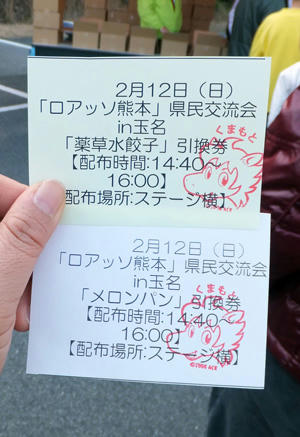 2月12日（日）
「ロアッソ熊本」県民交流会
in玉名
「薬草水餃子」引換券
【配布時間:14:40～
16:00】
【配布場所:ステージ横】
くまもと
2月12日（日）
「ロアッソ熊本」県民交流会
in玉名
「メロンパン」引換券
【配布時間:14:40～
16:00】
【配布場所:ステージ横】
くまもと